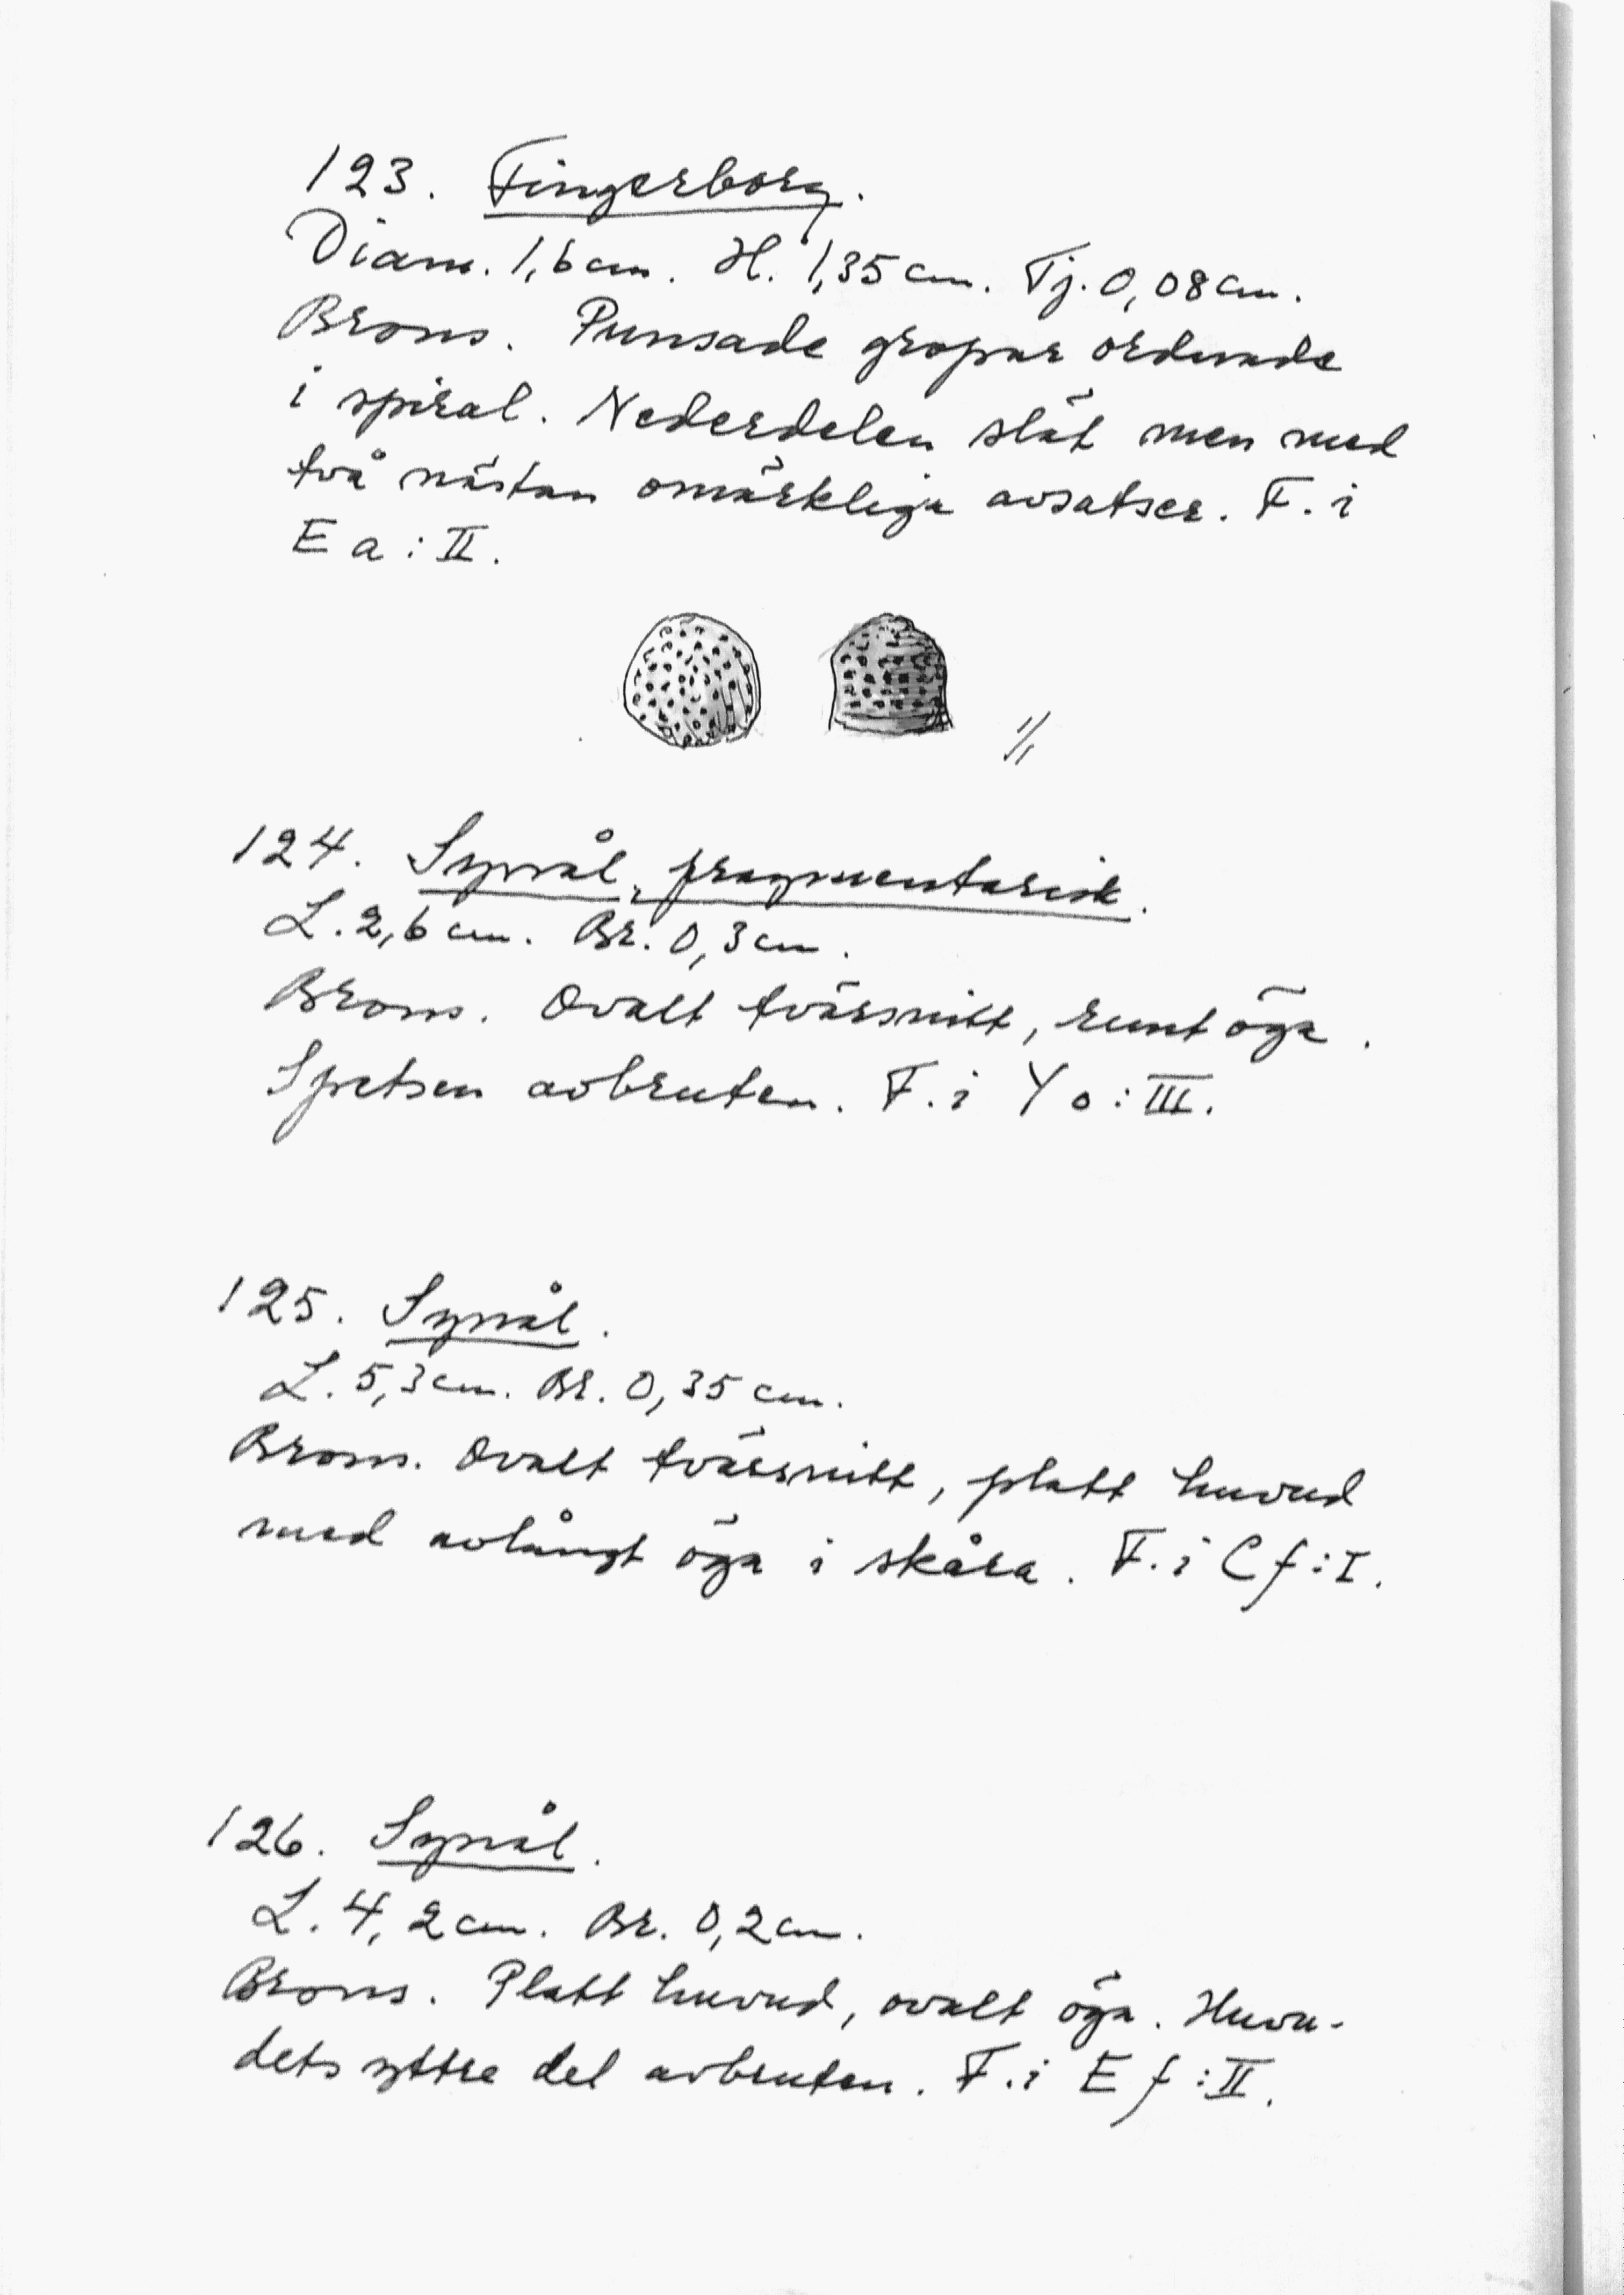 123. Fingerborg.
Diam. 1,6 cm. H. 1,35 cm. Tj. 0,08 cm.
Brons. Punsade gropar ordnade
i spiral. Nederdelen slät men med
två nästan omärkliga avsatser. F. i
E a : II.
1/1
124. Synål, fragmentarisk.
L. 2,6 cm. Br. 0,3 cm.
Brons. Ovalt tvärsnitt, runt öga.
Spetsen avbruten. F. i Y o : III.
125. Synål.
L. 5,3 cm. Br. 0,35 cm.
Brons. Ovalt tvärsnitt, platt huvud
med avlångt öga i skåra. F. i C f : I.
126. Synål.
L. 4,2 cm. Br. 0,2 cm.
Brons. Platt huvud, ovalt öga. Huvu-
dets yttre del avbruten. F. i E f : II.